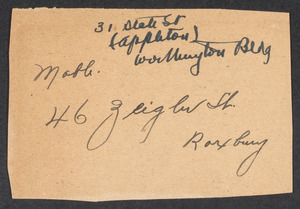 31 State St
(Appleton)
Worthington Bldg
Moth.
46 Zeigler St.
Roxbury